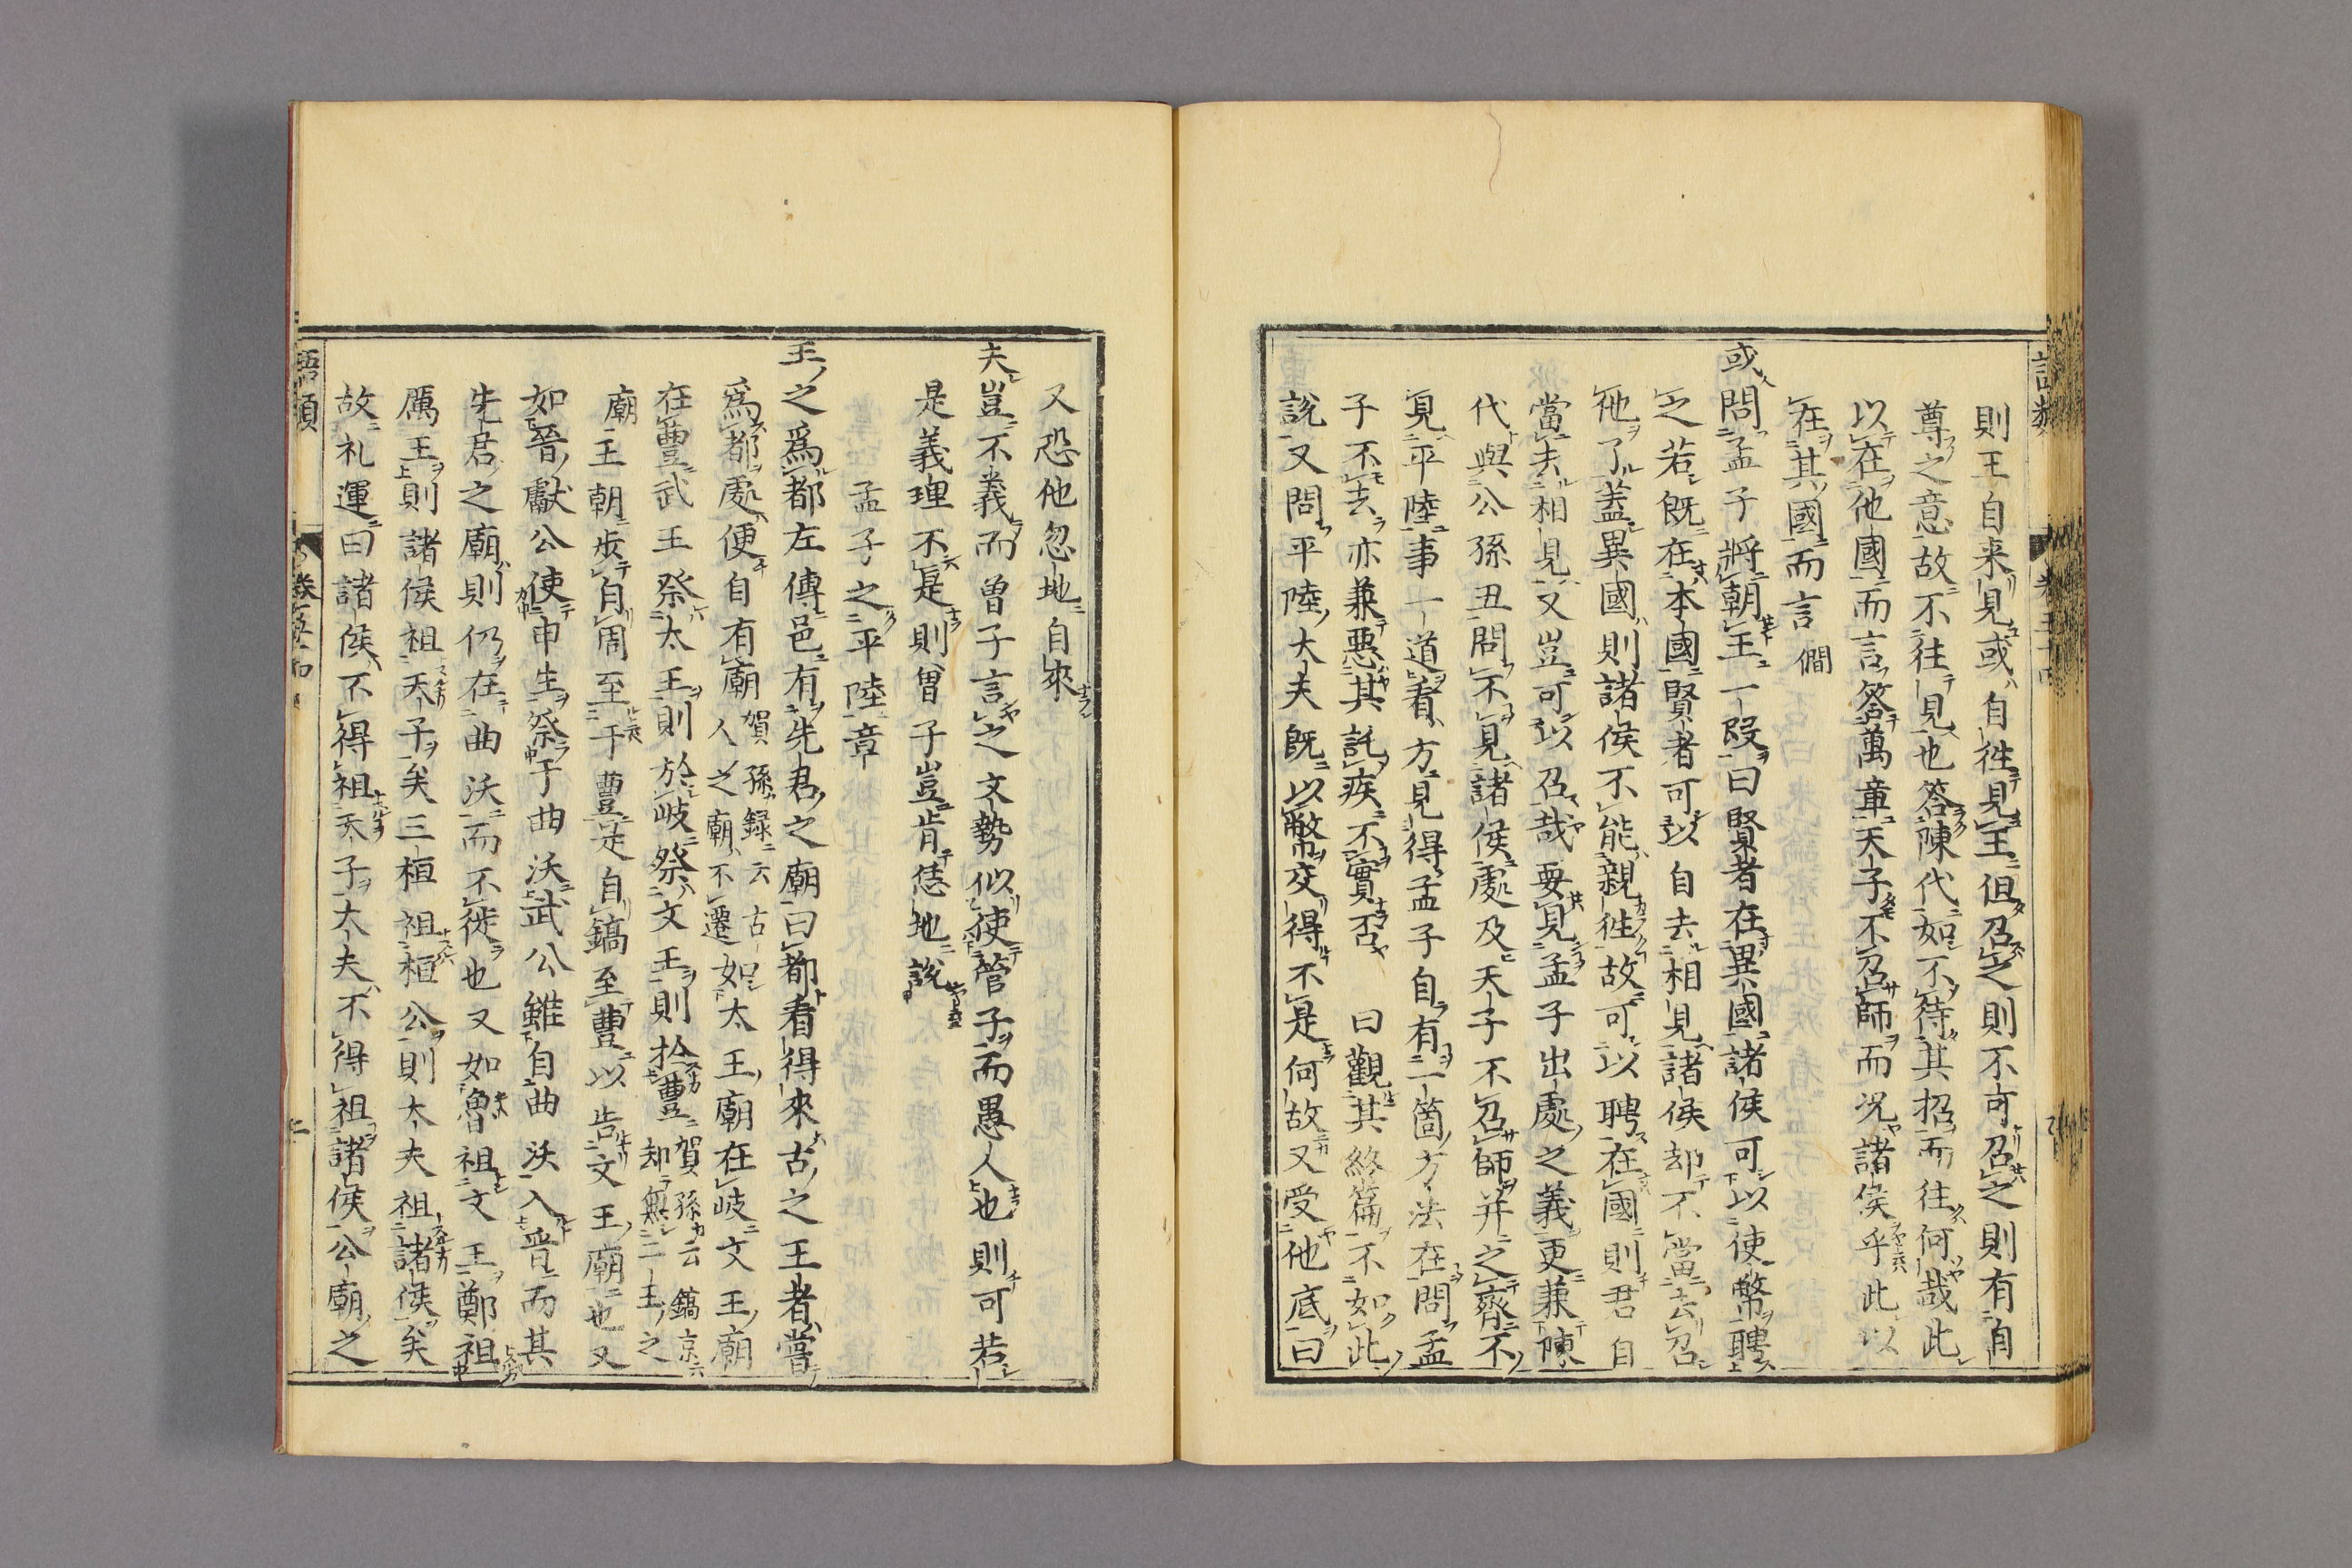 則王自来見或自徃見王但召之則不可召之則有自
尊之意故不往見也答陳代如不待其招而往何哉此
以在他國而言答萬章天子不召師而况諸侯乎此以
在其國而言 僩
或問孟子將朝王一段曰賢者在異國諸侯可以使幣聘
之若既在本國賢者可以自去相見諸侯却不當去召
他了蓋異國則諸侯不能親徃故可以聘在國則君自
當去相見又豈可以召哉要見孟子出處之義更兼陳
代與公孫丑問不見諸侯處及天子不召師并之齊不
見平陸事一道看方見得孟子自有一箇方法在問孟
子不去亦兼惡其託疾不實否 曰觀其終篇不如此
說又問平陸大夫既以幣交得不是何故又受他底曰
又恐他忽地自來
夫豈不義而曽子言之文勢似使管子而愚人也則可若
是義理不是則曽子豈肯恁地說
孟子之平陸章
王之爲都左傳邑有先君之廟曰都看得來古之王者嘗
爲都處便自有廟 賀孫録云古人之廟不遷 如太王廟在岐文王廟
在豐武王祭太王則於岐祭文王則於豐 賀孫云鎬京却無二王之
廟 王朝步自周至于豐是自鎬至豐以告文王廟也又
如晉獻公使申生祭于曲沃武公雖自曲沃入晋而其
先君之廟則仍在曲沃而不徙也又如魯祖文王鄭祖
厲王則諸侯祖天子矣三桓祖桓公則大夫祖諸侯矣
故礼運曰諸侯不得祖天子大夫不得祖諸侯公廟之
語類 卷五十四 二